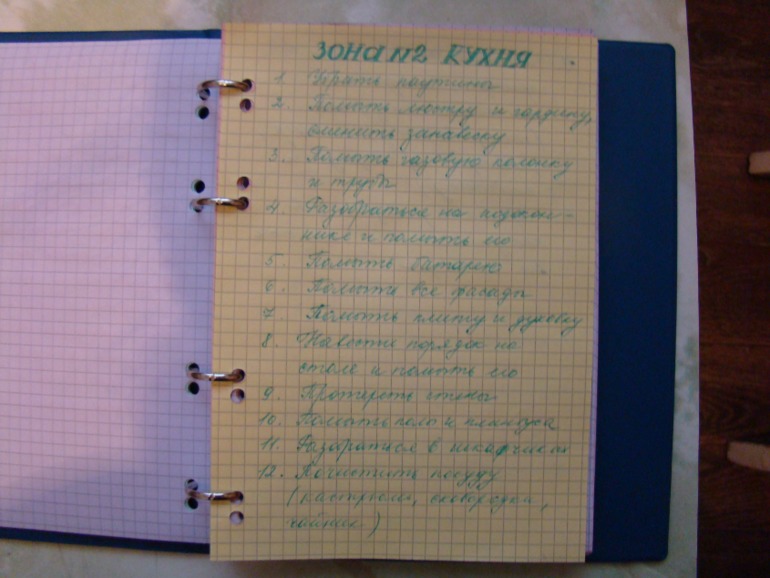 ЗОНА №2 КУХНЯ
1. Убрать паутину
2. Помыть люстру и гардину,
сменить занавеску
3. Помыть газовую колонку
и трубы
4. Разобраться на подокон-
нике и помыть его
5. Помыть батарею
6. Помыть все фасады
7. Помыть плиту и духовку
8. Навести порядок на
столе и помыть его
9. Протереть стены
10. Помыть полы и плинтуса
11. Разобраться в шкафчиках
12. Почистить посуду
(кастрюли, сковородки,
чайник)